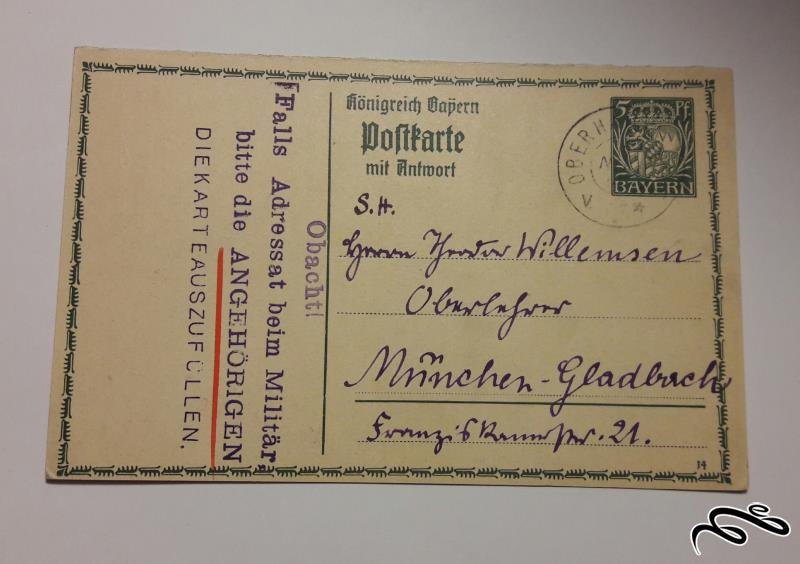 Königreich Bayern
Postkarte
mit Antwort
5 Pf
BAYERN
OBERH
S. H.
Herrn Theodor Willemsen
Oberlehrer
München-Gladbach
Franziskanerstr. 21.
14
Obacht!
Falls Adressat beim Militär,
bitte die ANGEHÖRIGEN
DIE KARTE AUSZUFÜLLEN.